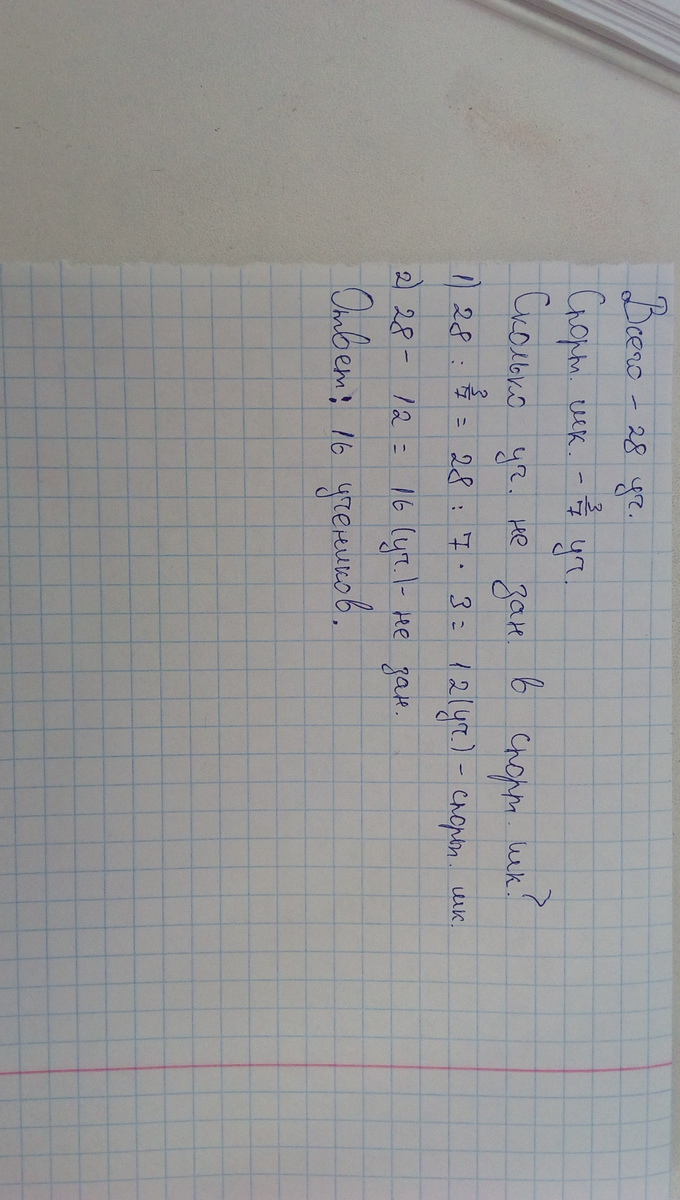 Всего - 28 уч.
Спорт. шк. - 3/7 уч.
Сколько уч. не зан. в спорт. шк.?
1) 28 : 3/7 = 28 : 7 · 3 = 12 (уч.) - спорт. шк.
2) 28 - 12 = 16 (уч.) - не зан.
Ответ: 16 учеников.